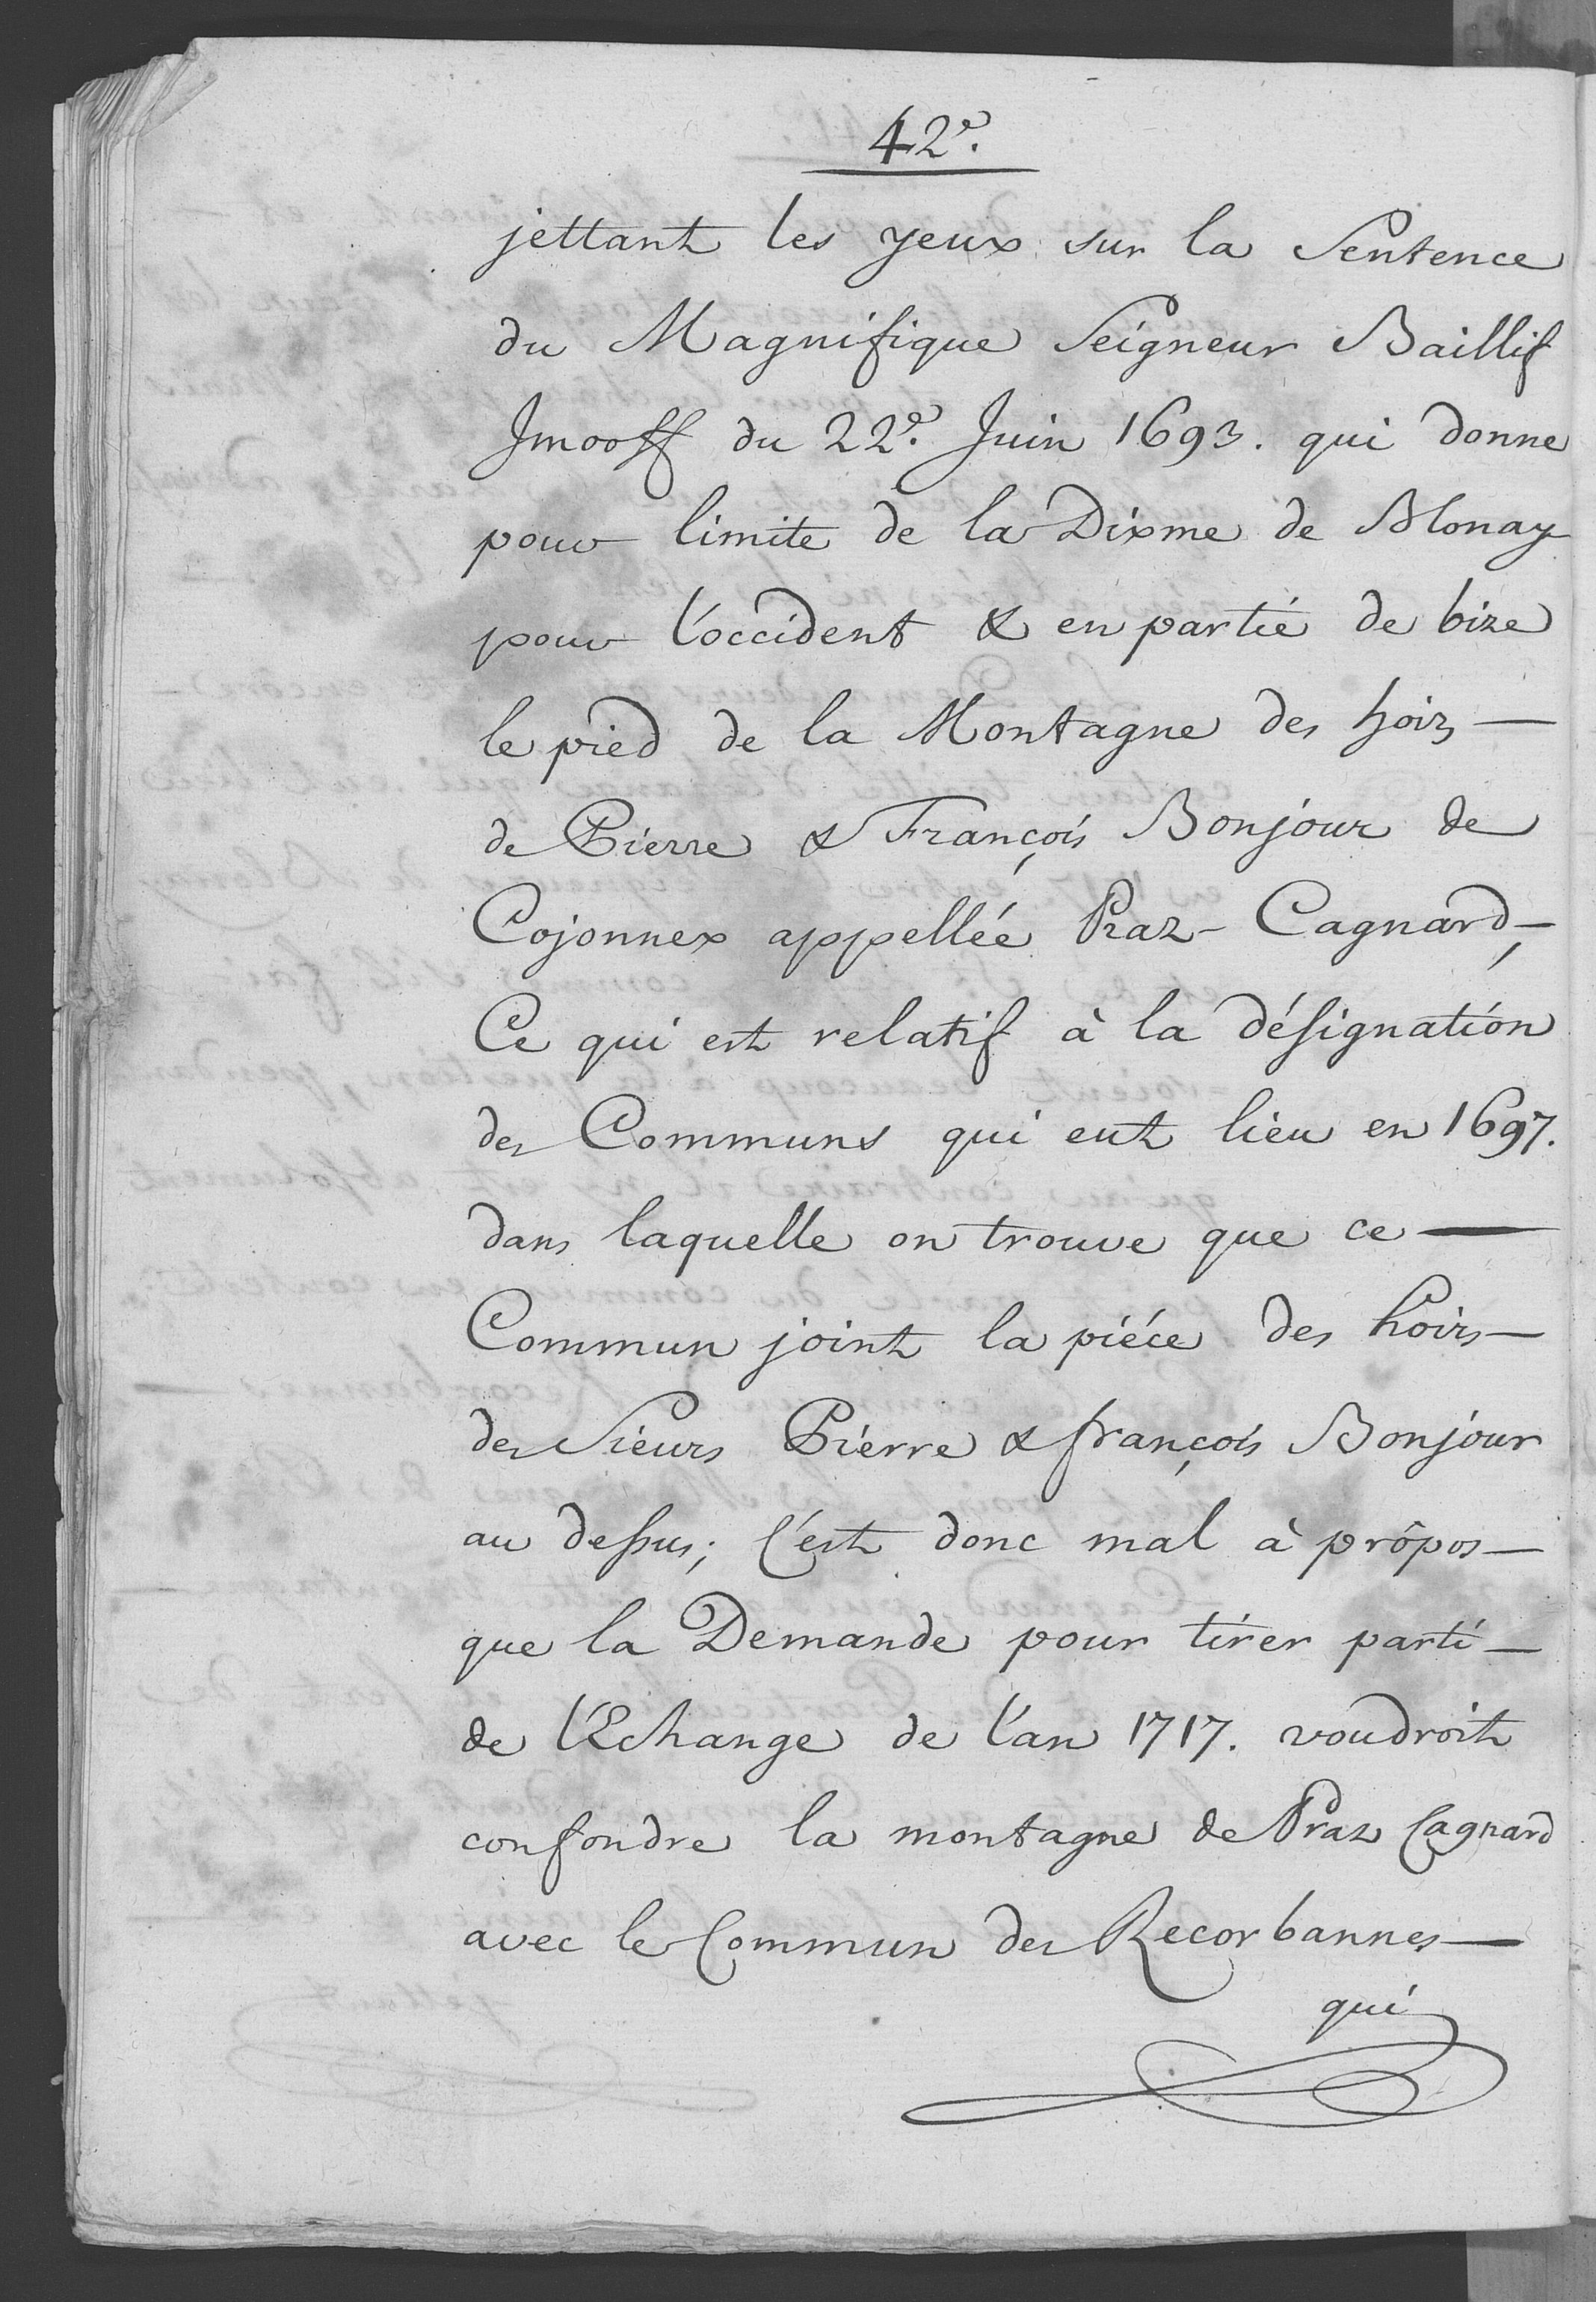 42.e
jettant les yeux sur la Sentence
du Magnifique Seigneur Baillif
Jmooff du 22.e Juin 1693. qui donne
pour limite de la Dixme de Blonay
pour l'occident & en partie de bize
le pied de la Montagne des hoirs —
de Pierre & François Bonjour de
Cojonnex appellée Praz-Cagnard, —
Ce qui est relatif à la désignation
des Communs qui eut lieu en 1697.
dans laquelle on trouve que ce —
Commun joint la piéce des hoirs —
des Sieurs Pierre & françois Bonjour
au dessus; C'est donc mal à prôpos —
que la Demande pour tirer parti —
de l'Echange de l'an 1717. voudroit
confondre la montagne de Praz Cagnard
avec le Commun des Recorbannes —
qui